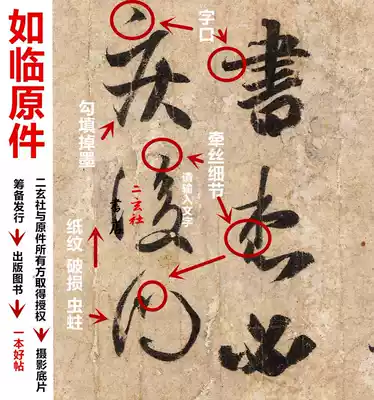 如临原件
二玄社与原件所有方取得授权 摄影底片
筹备发行 出版图书 一本好帖
字口
勾填掉墨
牵丝细节
请输入文字
二玄社
纸纹 破损 虫蛀
書
後